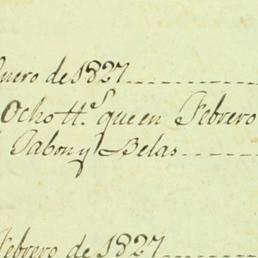 enero de 1827
Ocho tt.s que en Febrero
Jabon y Belas
Febrero de 1827